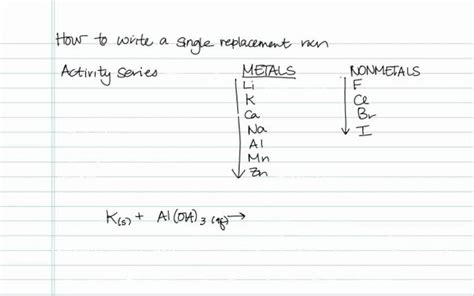 How to write a single replacement rxn
Activity series METALS NONMETALS
Li F
K Cl
Ca Br
Na I
Al
Mn
Zn
K(s) + Al(OH)3 (aq) →